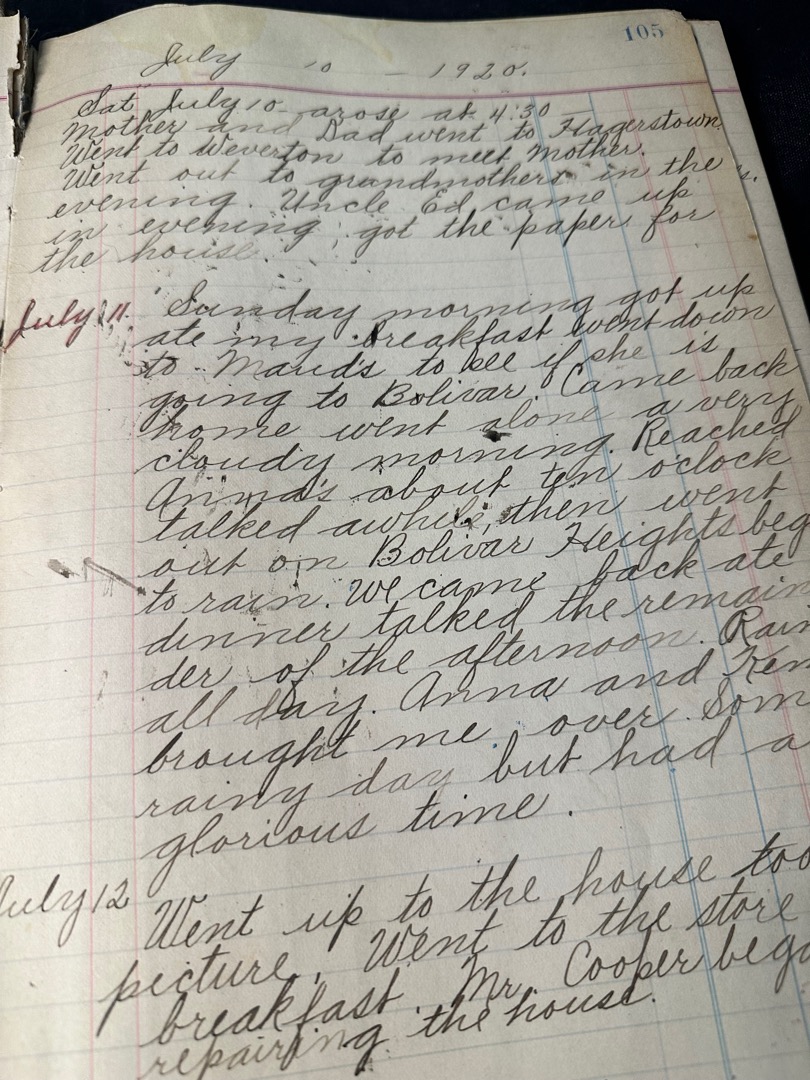 105
July 10 - 1920.
Sat July 10 arose at 4:30 -
Mother and Dad went to Hagerstown.
Went to Weverton to meet Mother.
Went out to grandmothers in the
evening. Uncle Ed came up
in evening, got the paper for
the house.
July 11 Sunday morning got up
ate my breakfast went down
to Maud's to see if she is
going to Bolivar. Came back
home went alone a very
cloudy morning. Reached
Anna's about ten o'clock
talked awhile, then went
out on Bolivar Heights beg
to rain. We came back ate
dinner talked the remain
der of the afternoon. Rain
all day. Anna and Ken
brought me over. Som
rainy day but had a
glorious time.
July 12 Went up to the house too
picture. Went to the store
breakfast. Mr. Cooper bega
repairing the house.